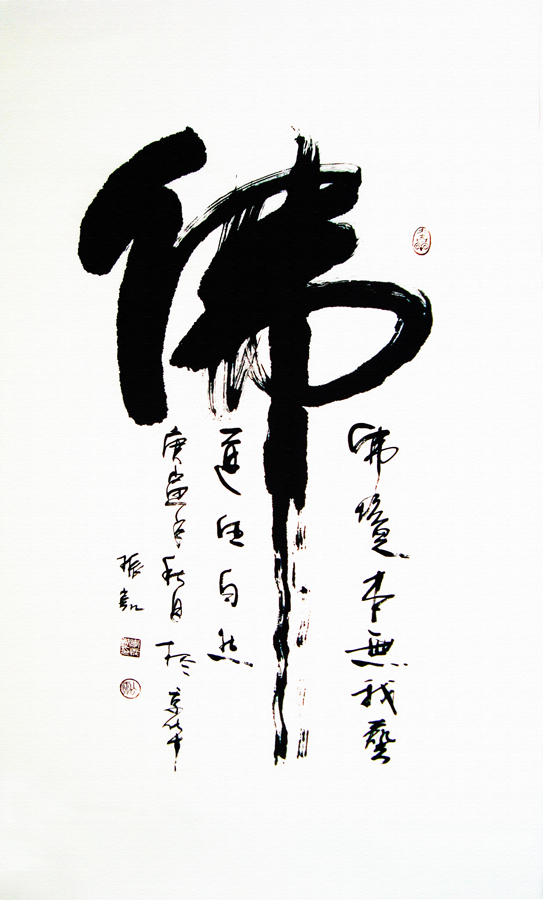 佛
佛境本無我藝
道法自然
庚寅年秋月於京華
振嘉